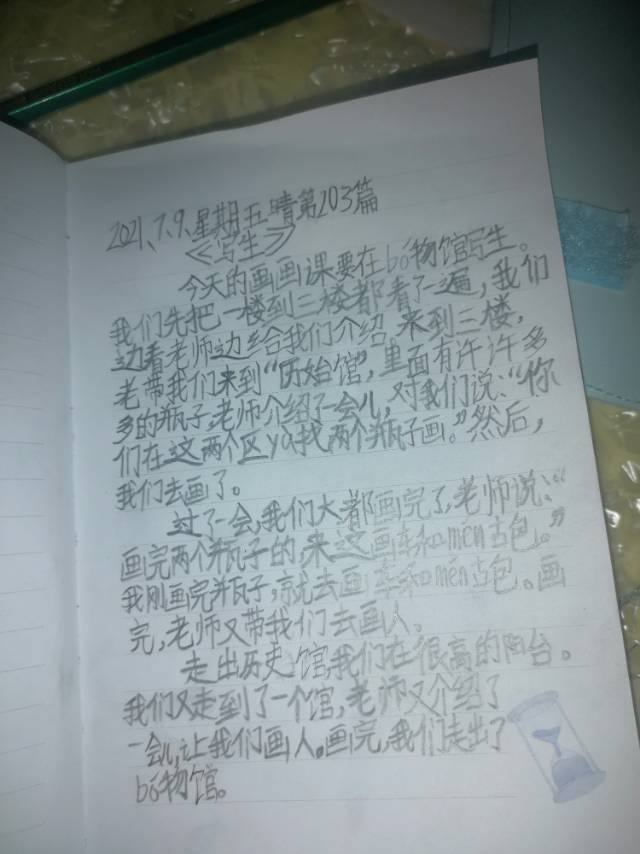 2021、7.9.星期五晴第203篇
《写生》
今天的画画课要在bó物馆写生。
我们先把一楼到三楼都看了一遍，我们
边看老师边给我们介绍。来到三楼，
老带我们来到“历始馆”，里面有许许多
多的瓶子，老师介绍了一会儿，对我们说：“你
们在这两个区yù找两个瓶子画。”然后，
我们去画了。
过了一会，我们大都画完了，老师说：“
画完两个瓶子的，来这画车和mén古包。”
我刚画完瓶子，就去画车和mén古包。画
完，老师又带我们去画人。
走出历史馆，我们在很高的阳台。
我们又走到了一个馆，老师又介绍了
一会儿，让我们画人。画完，我们走出了
bó物馆。